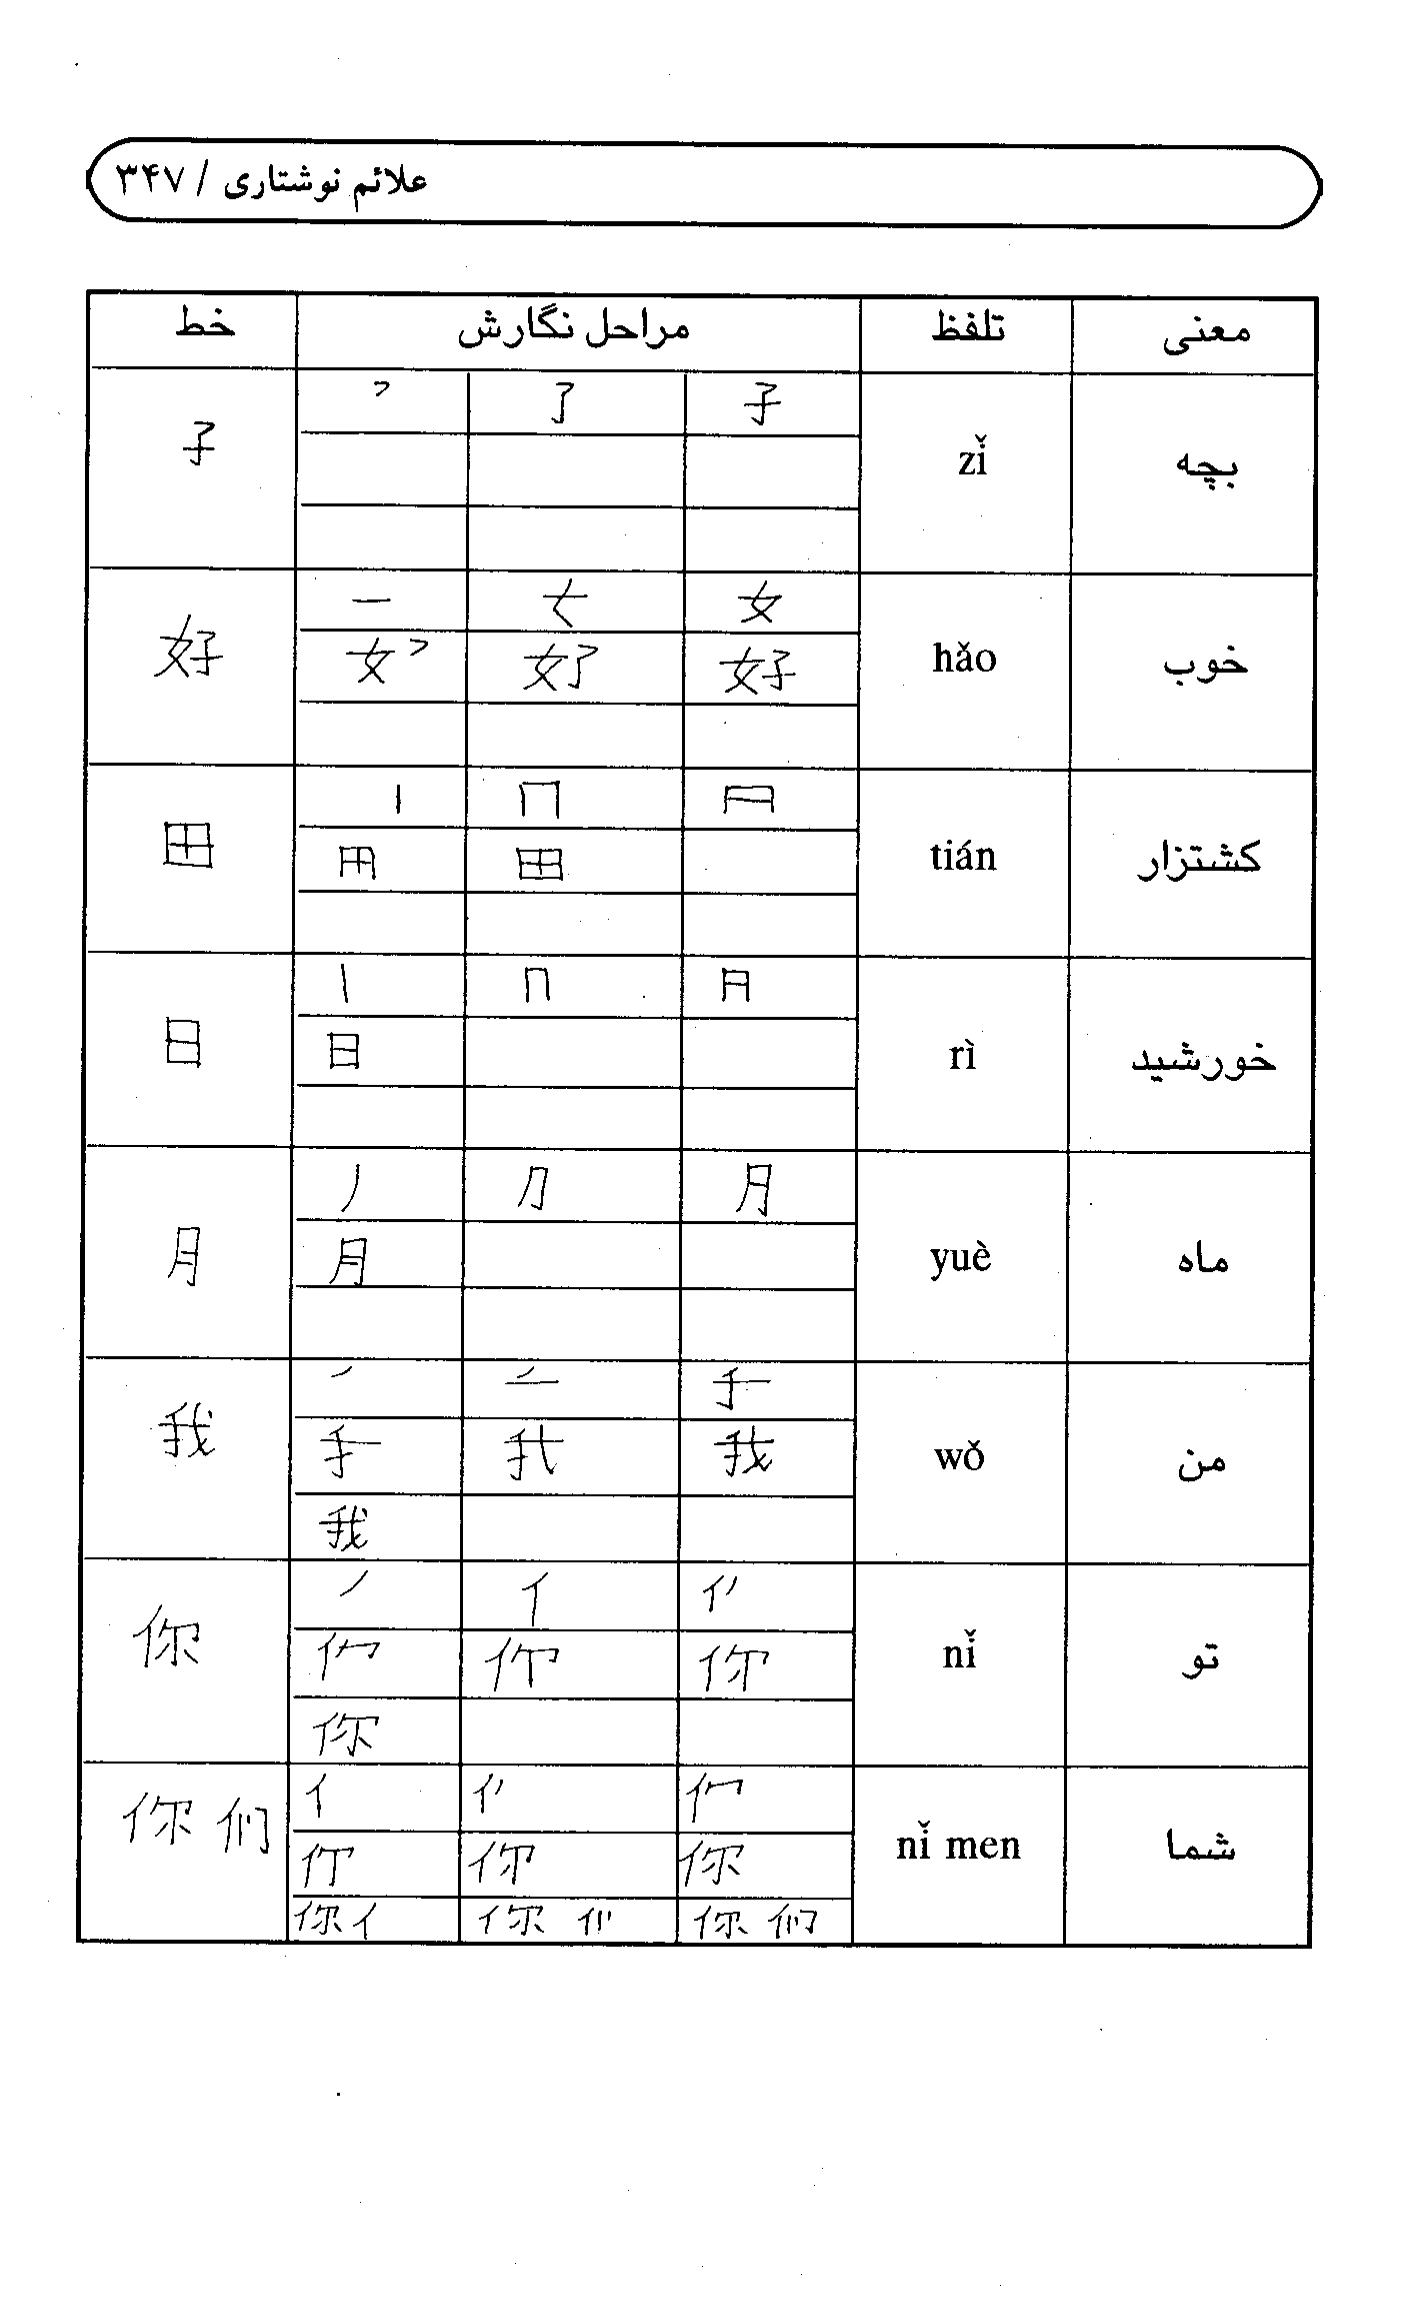 علائم نوشتاری / ۳۴۷
معنی تلفظ مراحل نگارش خط
بچه zǐ 了 子 子
خوب hǎo 一 女 好 好
کشتزار tián 丨 冂 田 田
خورشید rì 丨 冂 日 日
ماه yuè 丿 月 月
من wǒ 我 我
تو nǐ 丿 亻 你 你
شما nǐ men 亻 你 你亻 你们 你们